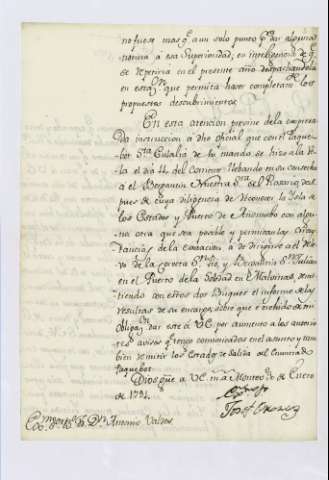 no fuese mas q.e a un solo punto p.a dar alguna
noticia á esa Superioridad; en inteligencia de q.e
se repetiria en el presente año despachandola
en estac.n que permita hacer completam.te los
propuestos descubrimientos.
En esta atencion previne de la expresa
da instruccion á dho oficial que con el Paque
bot S.ta Eulalia de su mando se hizo á la Ve
la el dia 4 del Corriente llebando en su conserba
á el Bergantin Nuestra S.ra del Rosario, des
pues de cuya diligencia de reconocer la Isla de
los Estados y Puerto de Año nuebo con algu
na otra que sea posible y permitan las Circuns
tancias de la estacion, á de dirigirse á el
de la Corveta S.n Pio, y Bergantin S.n Julian
en el Puerto de la Soledad en Malvinas, remi
tiendo con estos dos Buques el informe de las
resultas de su encargo, sobre que é creido de mi
obligaz.n dar este á V.E. por aumento a los anterio
res avisos q.e tengo comunicados en el asunto y tam
bien remitir los Estados de Salida del enunciado
Paquebot.
Dios gue á V.E. m.s a.s Montev.o de Enero
de 1791.
Exmo S.or
Josef Orozco
Exmo S.or B.o Fr. D.n Antonio Valdes